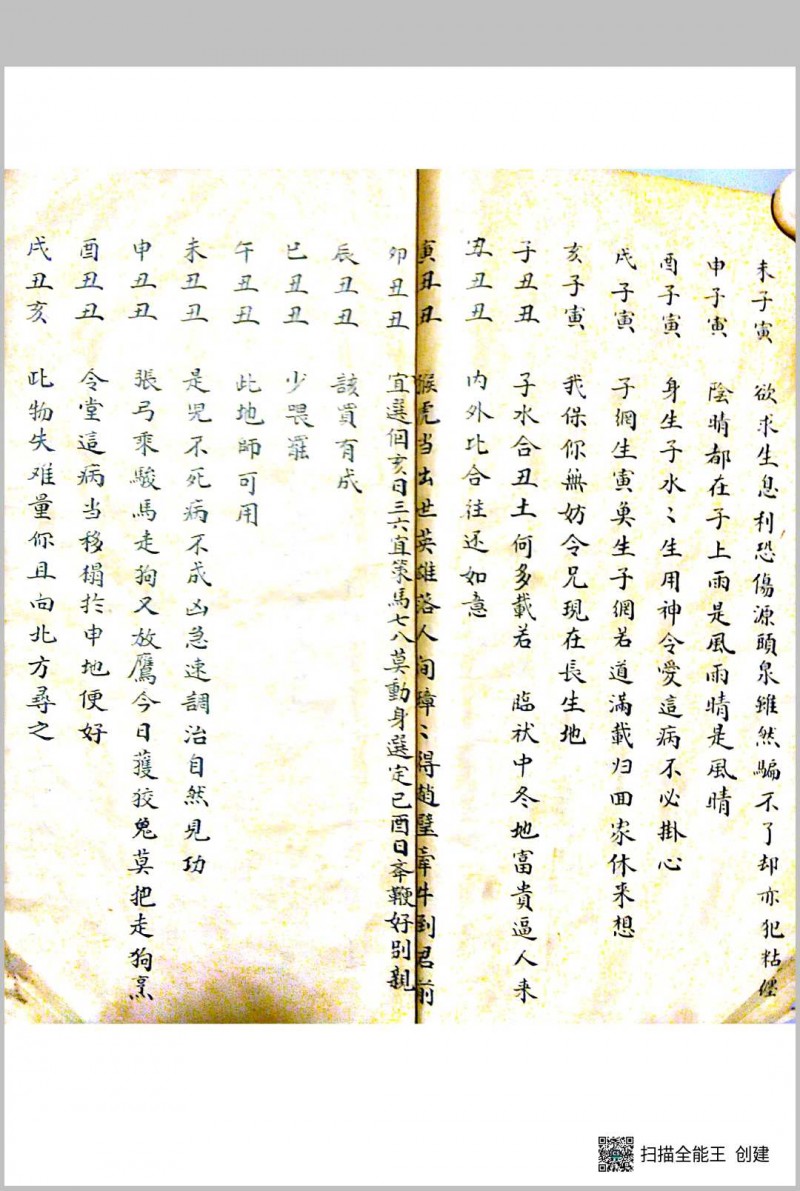 未子寅 欲求生息利恐傷源頭泉雖然騙不了却亦犯粘
申子寅 陰晴都在子上雨是風雨晴是風晴
酉子寅 身生子水〻生用神令愛這病不必掛心
戌子寅 子網生寅奠生子網若道滿載归回家休来想
亥子寅 我保你無妨令兄現在長生地
子丑丑 子水合丑土何多載若 臨袱中冬地富貴逼人来
丑丑丑 内外比合往还如意
寅丑丑 猴虎当出世英雄落人间璋〻得趙璧牽牛到君前
卯丑丑 宜選個亥日三六宜策馬七八莫動身選定己酉日奉鞭好别親
辰丑丑 該買有成
巳丑丑 少畏罹
午丑丑 此地師可用
未丑丑 是児不死病不成凶急速調治自然見功
申丑丑 張弓乘駿馬走狗又放鷹今日獲狡兔莫把走狗烹
酉丑丑 令堂這病当移榻扵申地便好
戌丑亥 此物失难量你且向北方尋之
扫描全能王 创建